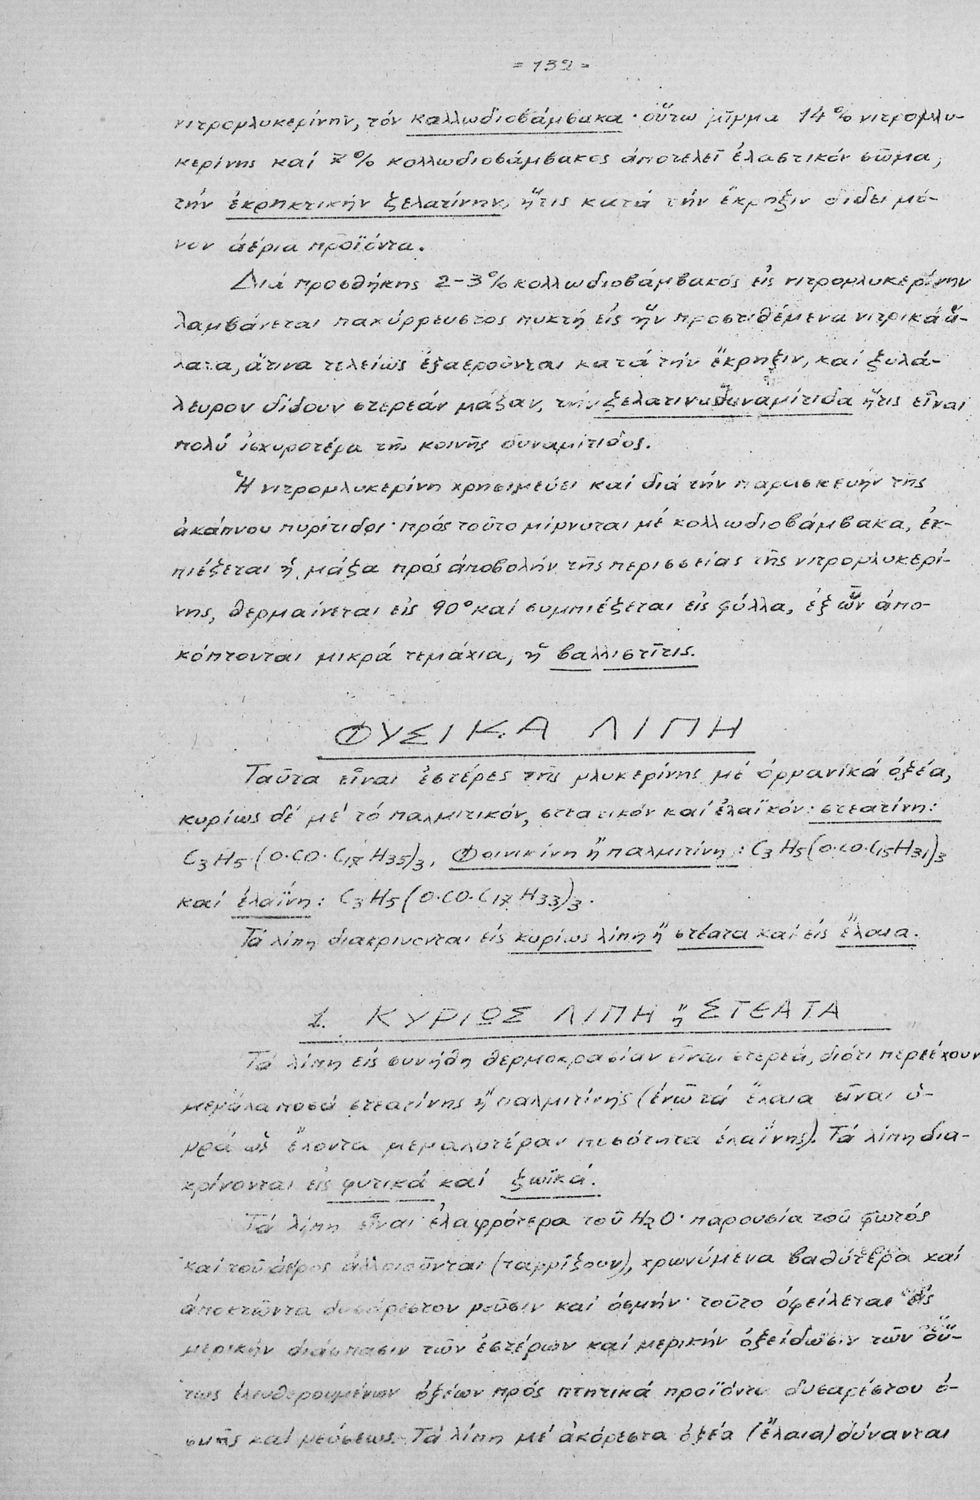 = 132 =
νιτρογλυκερίνην, τόν κολλωδιοβάμβακα · οὕτω μῖγμα 14% νιτρογλυ-
κερίνης καί % κολλωδιοβάμβακος ἀποτελεῖ ἐλαστικόν σῶμα,
τήν ἐκρηκτικήν ζελατίνην, ἥτις κατά τήν ἔκρηξιν δίδει μό-
νον ἀέρια προϊόντα.
Διά προσθήκης 2-3% κολλωδιοβάμβακος εἰς νιτρογλυκερίνην
λαμβάνεται παχύρρευστος πυκτή εἰς ἥν προστιθέμενα νιτρικά ἅ-
λατα, ἅτινα τελείως ἐξαεροῦνται κατά τήν ἔκρηξιν, καί ξυλά-
λευρον δίδουν στερεάν μᾶζαν, τήν ζελατινοδυναμίτιδα ἥτις εἶναι
πολύ ἰσχυροτέρα τῆς κοινῆς δυναμίτιδος.
Ἡ νιτρογλυκερίνη χρησιμεύει καί διά τήν παρασκευήν τῆς
ἀκάπνου πυρίτιδος · πρός τοῦτο μίγνυται μέ κολλωδιοβάμβακα, ἐκ-
πιέζεται ἡ μᾶζα πρός ἀποβολήν τῆς περισσείας τῆς νιτρογλυκερί-
νης, θερμαίνεται εἰς 90° καί συμπιέζεται εἰς φύλλα, ἐξ ὧν ἀπο-
κόπτονται μικρά τεμάχια, ἥ βαλλιστῖτις.
ΦΥΣΙΚΑ ΛΙΠΗ
Ταῦτα εἶναι ἐστέρες τῆς γλυκερίνης μέ ὀργανικά ὀξέα,
κυρίως δέ μέ τό παλμιτικόν, στεατικόν καί ἐλαϊκόν: στεατίνη:
C3H5(O·CO·C17H35)3, Φοινικίνη ἤ παλμιτίνη: C3H5(O·CO·C15H31)3
καί ἐλαΐνη: C3H5(O·CO·C17H33)3.
Τά λίπη διακρίνονται εἰς κυρίως λίπη ἤ στέατα καί εἰς ἔλαια.
1. ΚΥΡΙΩΣ ΛΙΠΗ ἤ ΣΤΕΑΤΑ
Τά λίπη εἰς συνήθη θερμοκρασίαν εἶναι στερεά, διότι περιέχουν
μεγάλα ποσά στεατίνης ἤ παλμιτίνης (ἐνῶ τά ἔλαια εἶναι ὑ-
γρά ὡς ἔχοντα μεγαλυτέραν ποσότητα ἐλαΐνης). Τά λίπη δια-
κρίνονται εἰς φυτικά καί ζωϊκά.
Τά λίπη εἶναι ἐλαφρότερα τοῦ H2O · παρουσία τοῦ φωτός
καί τοῦ ἀέρος ἀλλοιοῦνται (ταγγίζουν), χρωνύμενα βαθύτερα καί
ἀποκτῶντα δυσάρεστον γεῦσιν καί ὀσμήν · τοῦτο ὀφείλεται εἰς
μερικήν διάσπασιν τῶν ἐστέρων καί μερικήν ὀξείδωσιν τῶν οὕ-
τως ἐλευθερουμένων ὀξέων πρός πτητικά προϊόντα δυσαρέστου ὀ-
σμῆς καί γεύσεως. Τά λίπη μέ ἀκόρεστα ὀξέα (ἔλαια) δύνανται